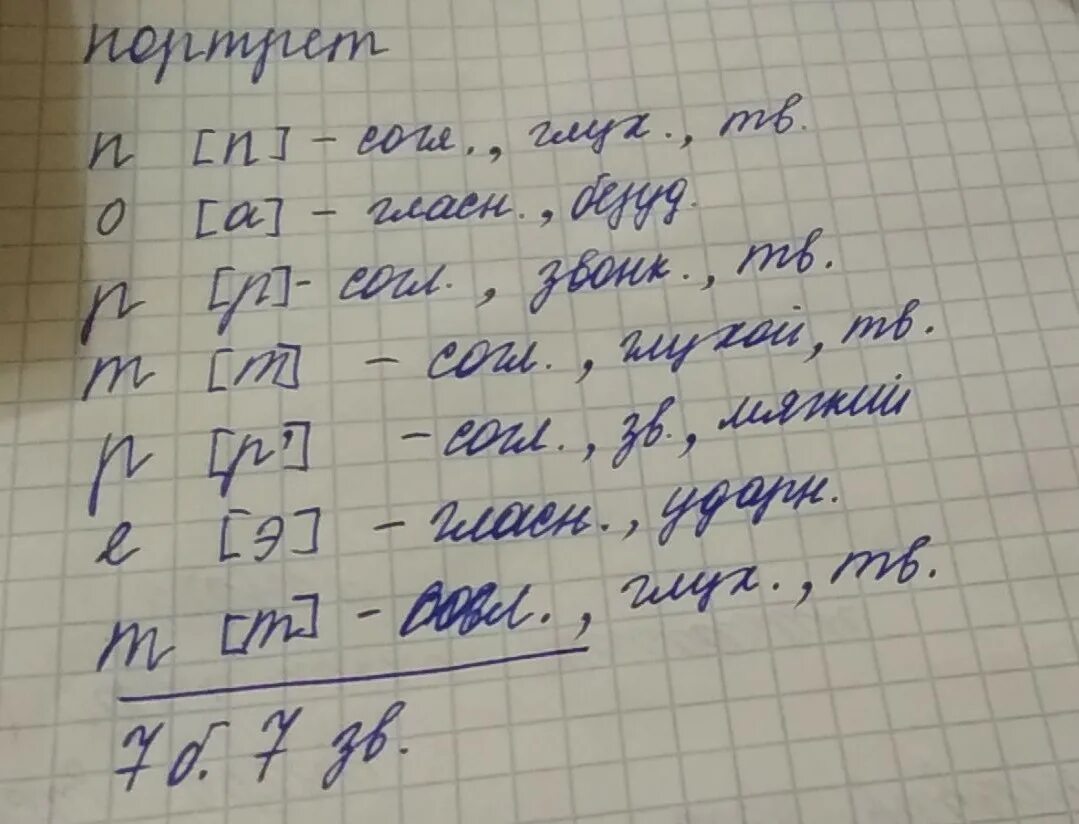 портрет
п [п] - согл., глух., тв.
о [а] - гласн., безуд.
р [р] - согл., звонк., тв.
т [т] - согл., глухой, тв.
р [р'] - согл., зв., мягкий
е [э] - гласн., ударн.
т [т] - согл., глух., тв.
7 б. 7 зв.